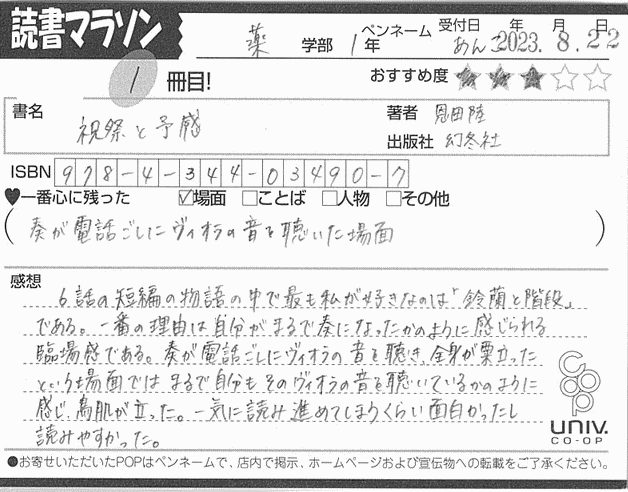 読書マラソン
薬 学部 1年 ペンネーム あんこ 受付日 2023年 8月 22日
1 冊目! おすすめ度 ★★★☆☆
書名 祝祭と予感 著者 恩田陸
出版社 幻冬社
ISBN 978-4-344-03490-7
♥一番心に残った ☑場面 □ことば □人物 □その他
(奏が電話ごしにヴィオラの音を聴いた場面)
感想
6話の短編の物語の中で最も私が好きなのは「鈴蘭と階段」
である。一番の理由は自分がまるで奏になったかのように感じられる
臨場感である。奏が電話ごしにヴィオラの音を聴き、全身が粟立った
という場面ではまるで自分もそのヴィオラの音を聴いているかのように
感じ、鳥肌が立った。一気に読み進めてしまうくらい面白かったし
読みやすかった。
coop
UNIV.
CO-OP
●お寄せいただいたPOPはペンネームで、店内で掲示、ホームページおよび宣伝物への転載をご了承ください。